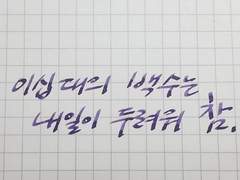 이십 대의 백수는
내일이 두려워 참.